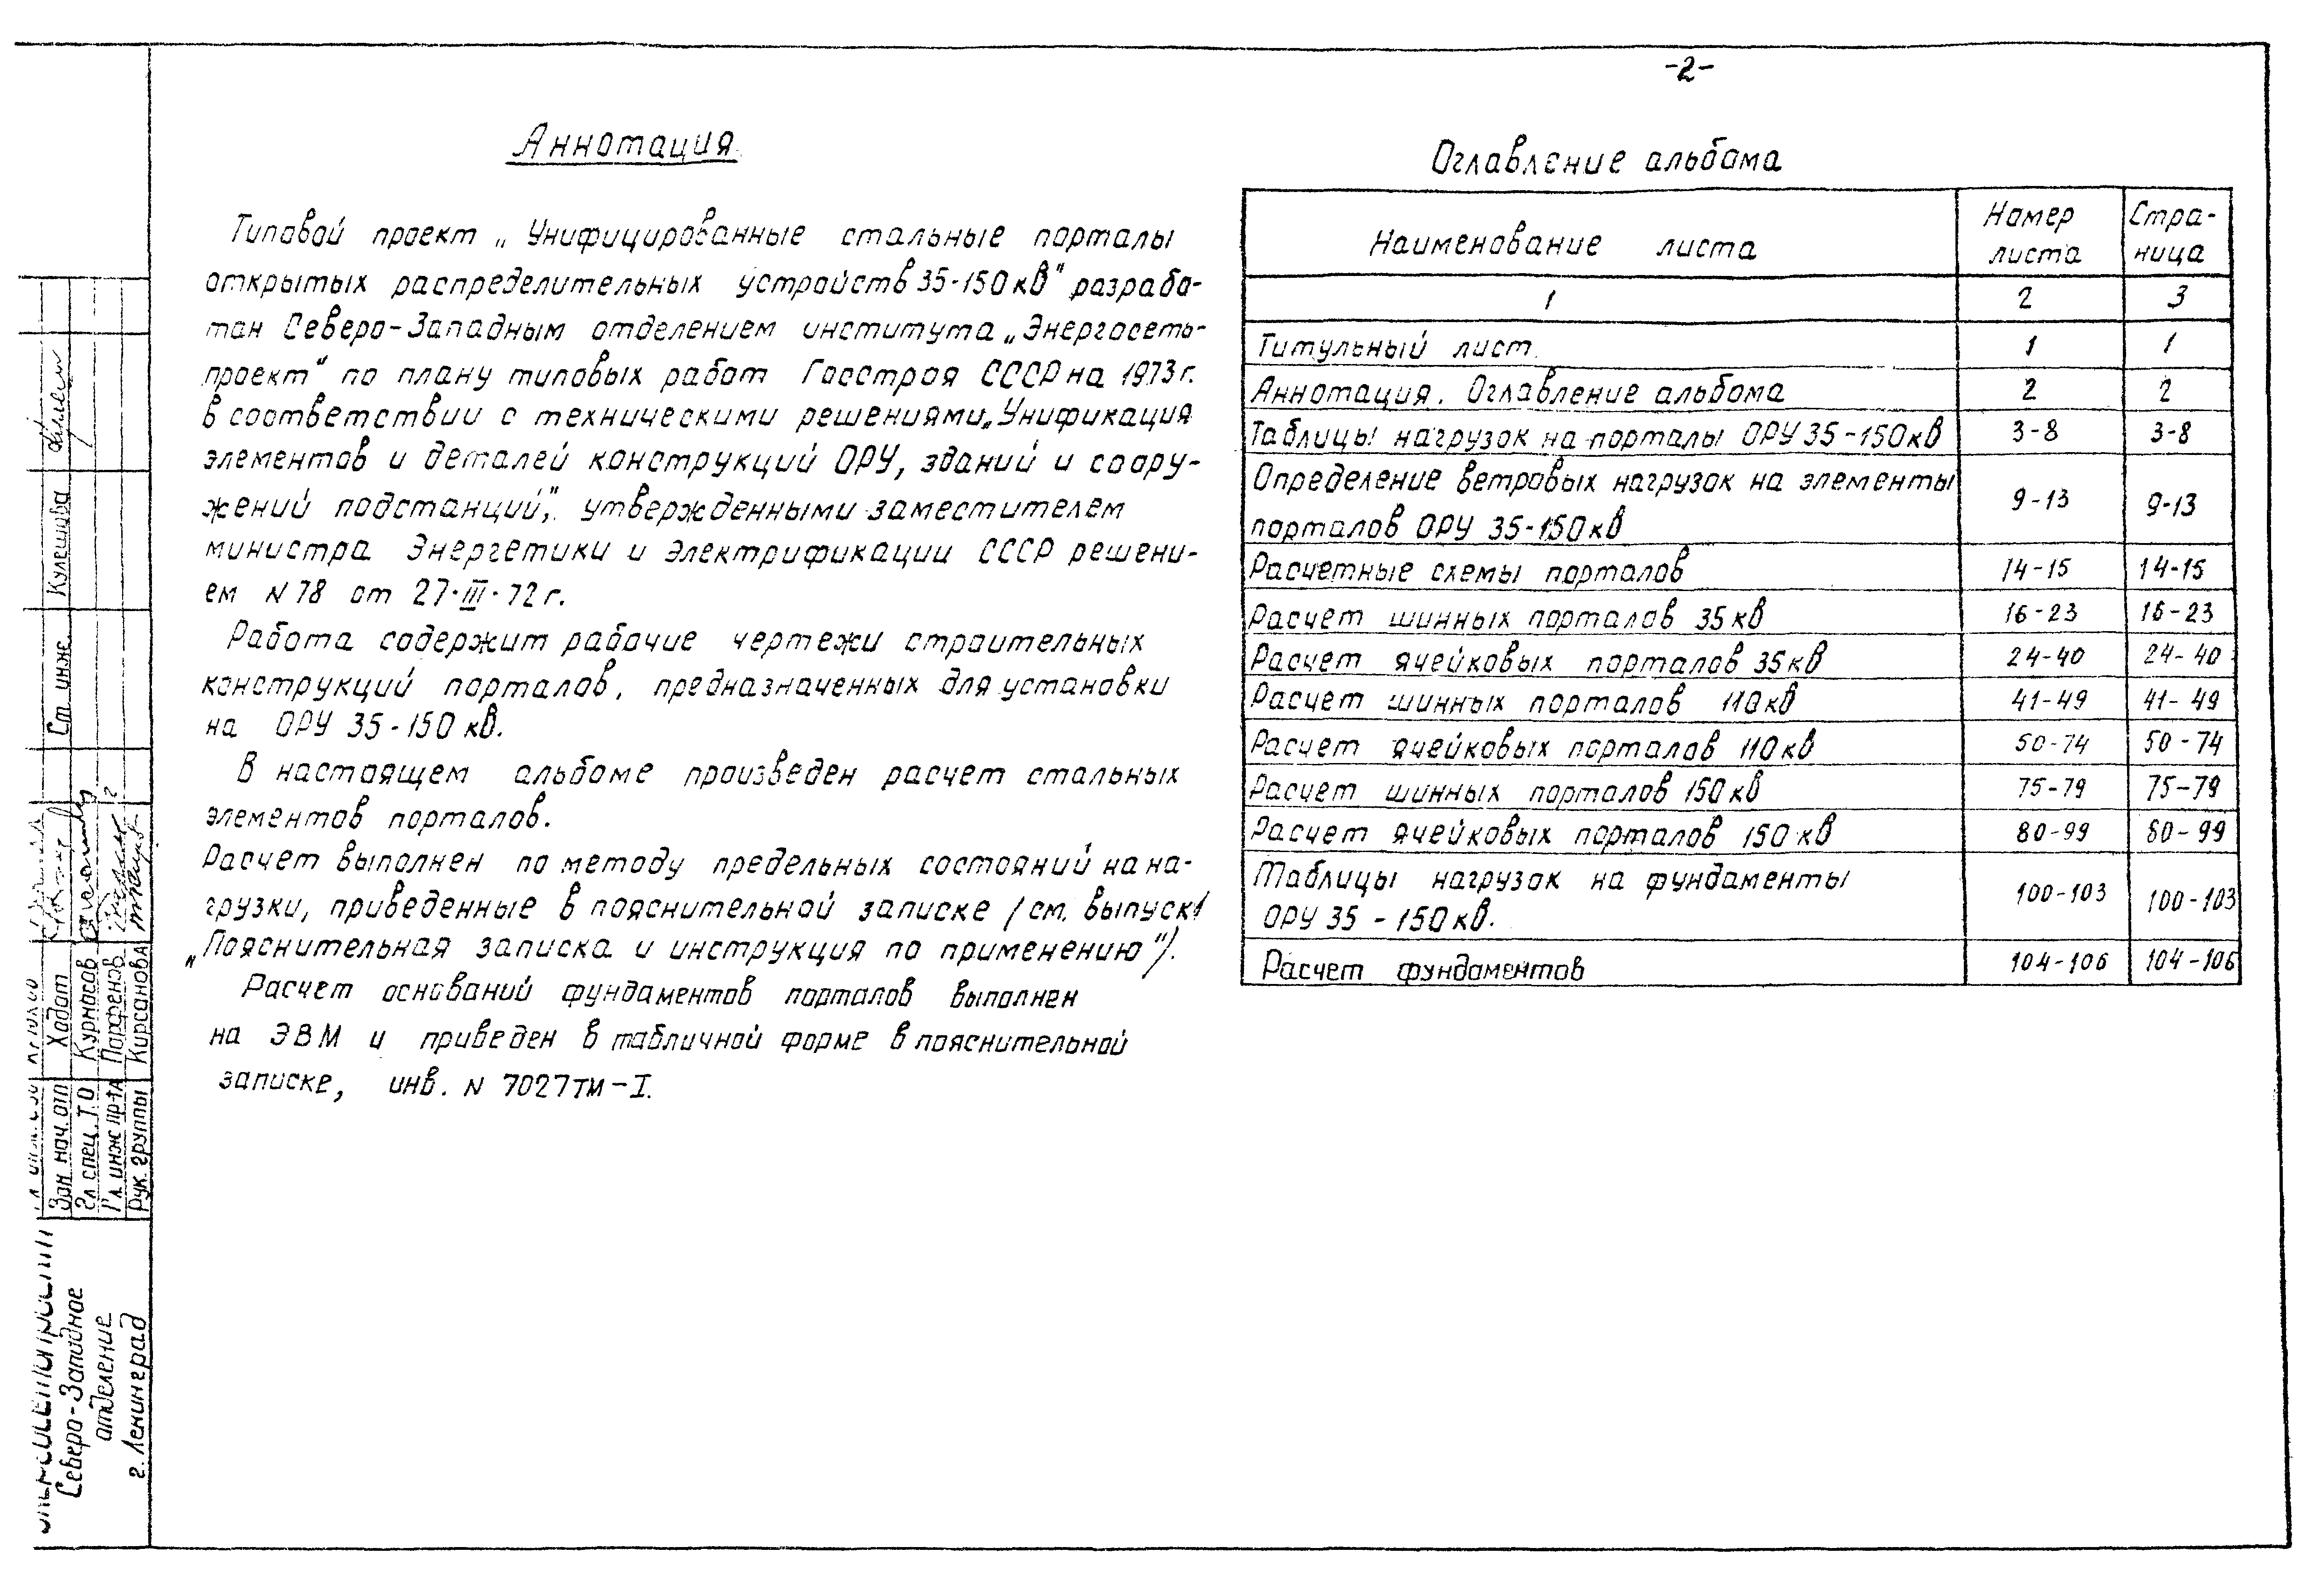 -2-
Аннотация
Типовой проект „Унифицированные стальные порталы
открытых распределительных устройств 35-150кв" разрабо-
тан Северо-Западным отделением института „Энергосеть-
проект" по плану типовых работ Госстроя СССР на 1973г.
в соответствии с техническими решениями „Унификация
элементов и деталей конструкций ОРУ, зданий и соору-
жений подстанций", утвержденными заместителем
министра Энергетики и Электрификации СССР решени-
ем N 78 от 27·III·72г.
Работа содержит рабочие чертежи строительных
конструкций порталов, предназначенных для установки
на ОРУ 35-150 кв.
В настоящем альбоме произведен расчет стальных
элементов порталов.
Расчет выполнен по методу предельных состояний на на-
грузки, приведенные в пояснительной записке /см. выпуск1
„Пояснительная записка и инструкция по применению"/.
Расчет оснований фундаментов порталов выполнен
на ЭВМ и приведен в табличной форме в пояснительной
записке, инв. N 7027тм-I.
Оглавление альбома
Наименование листа
Номер листа
Стра-
ница
1 2 3
Титульный лист. 1 1
Аннотация. Оглавление альбома 2 2
Таблицы нагрузок на порталы ОРУ 35-150кв 3-8 3-8
Определение ветровых нагрузок на элементы
порталов ОРУ 35-150кв 9-13 9-13
Расчетные схемы порталов 14-15 14-15
Расчет шинных порталов 35кв 16-23 16-23
Расчет ячейковых порталов 35кв 24-40 24-40
Расчет шинных порталов 110кв 41-49 41-49
Расчет ячейковых порталов 110кв 50-74 50-74
Расчет шинных порталов 150кв 75-79 75-79
Расчет ячейковых порталов 150кв 80-99 80-99
Таблицы нагрузок на фундаменты
ОРУ 35-150кв. 100-103 100-103
Расчет фундаментов 104-106 104-106
Зам нач. отп Хадот
Гл спец. Т.О Курносов
Гл инж пр-та Парфенов
Рук группы Кирсанова
Ст инж Кулешова
Северо-Западное
отделение
г. Ленинград